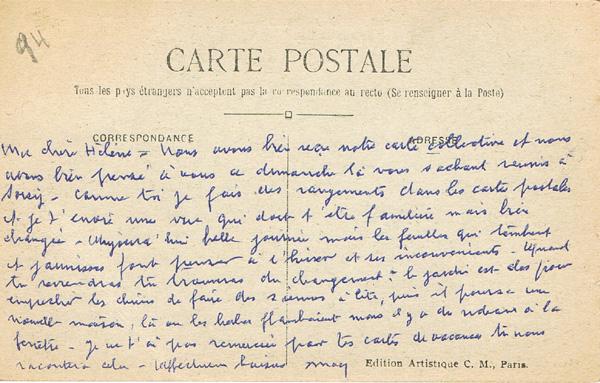 94
CARTE POSTALE
Tous les pays étrangers n'acceptent pas la correspondance au recto (Se renseigner à la Poste)
CORRESPONDANCE
ADRESSE
Ma chère Hélène = Nous avons bien reçu votre carte collective et nous
avons bien pensé à vous ce dimanche là vous sachant réunis à
comme toi je fais des rangements dans les cartes postales
et je t'envoie une vue qui doit t'être familière mais bien
changée - Aujourd'hui belle journée mais les feuilles qui tombent
et jaunissent font penser à l'hiver et ses inconvénients - Quand
tu reviendras tu trouveras du changement : le jardin est clos pour
empêcher les chiens de faire des siennes à côté, puis il pousse une
nouvelle maison, là ou les herbes flambaient mais il y a du rideau à la
fenêtre - je ne t'ai pas remerciée pour tes cartes de vacances tu nous
raconteras cela - Affectueux baisers
Edition Artistique C. M., Paris.